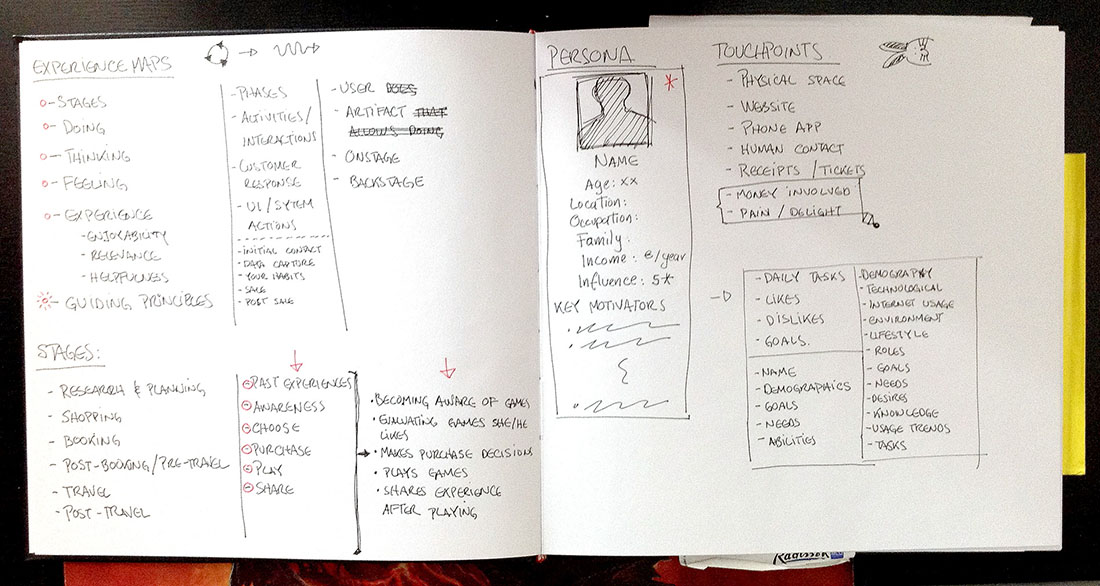 EXPERIENCE MAPS
- STAGES
- DOING
- THINKING
- FEELING
- EXPERIENCE
- ENJOYABILITY
- RELEVANCE
- HELPFULNESS
- GUIDING PRINCIPLES
- PHASES
- ACTIVITIES/
INTERACTIONS
- CUSTOMER
RESPONSE
- UI / SYTEM
ACTIONS
- INITIAL CONTACT
- DATA CAPTURE
- YOUR HABITS
- SALE
- POST SALE
- USER DOES
- ARTIFACT THAT
ALLOWS DOING
- ONSTAGE
- BACKSTAGE
STAGES:
- RESEARCH & PLANNING
- SHOPPING
- BOOKING
- POST-BOOKING/PRE-TRAVEL
- TRAVEL
- POST-TRAVEL
PAST EXPERIENCES
AWARENESS
CHOOSE
PURCHASE
PLAY
SHARE
• BECOMING AWARE OF GAMES
• EVALUATING GAMES SHE/HE
LIKES
• MAKES PURCHASE DECISIONS
• PLAYS GAMES
• SHARES EXPERIENCE
AFTER PLAYING
PERSONA
*
NAME
Age: xx
Location:
Occupation:
Family:
Income: €/year
Influence: 5*
KEY MOTIVATORS
TOUCHPOINTS
- PHYSICAL SPACE
- WEBSITE
- PHONE APP
- HUMAN CONTACT
- RECEIPTS / TICKETS
- MONEY INVOLVED
- PAIN / DELIGHT
- DAILY TASKS
- LIKES
- DISLIKES
- GOALS.
- NAME
- DEMOGRAPHICS
- GOALS
- NEEDS
- ABILITIES
- DEMOGRAPHY
- TECHNOLOGICAL
- INTERNET USAGE
- ENVIRONMENT
- LIFESTYLE
- ROLES
- GOALS
- NEEDS
- DESIRES
- KNOWLEDGE
- USAGE TRENDS
- TASKS
Radisson